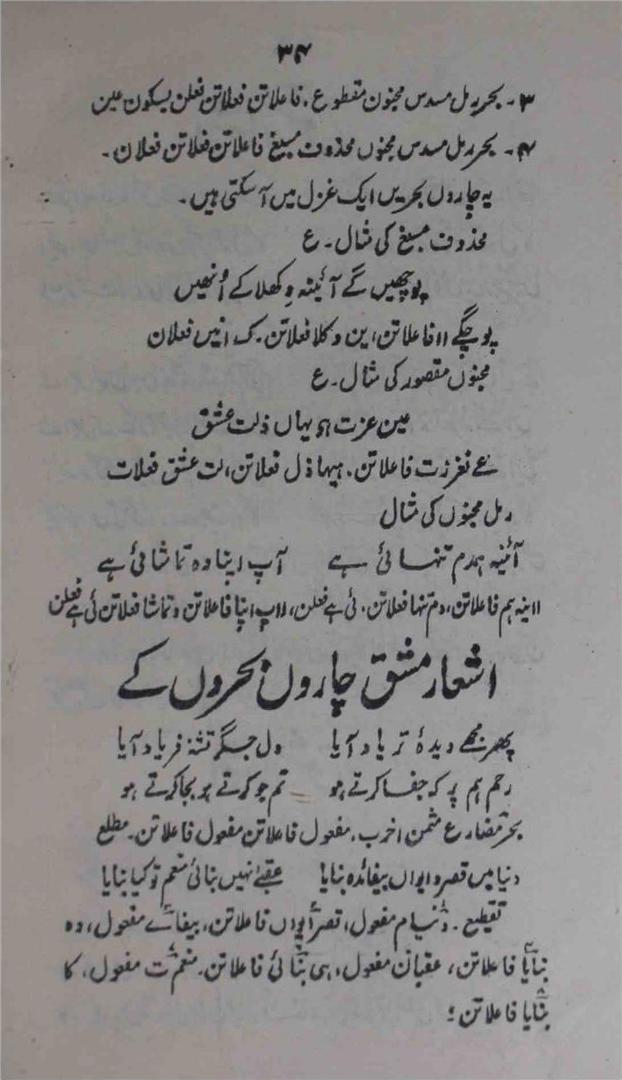 ۳۴
۳۔ بحر رمل مسدس مجنون مقطوع ، فاعلاتن فعلاتن فعلن بسکون عین
۴۔ بحر رمل مسدس مجنوں محذوف مسبغ فاعلاتن فعلاتن فعلان۔
یہ چاروں بحریں ایک غزل میں آ سکتی ہیں۔
محذوف مسبغ کی مثال۔ ع
پوچھیں گے آئینہ دکھلا کے اُنھیں
پوچگے اا فاعلاتن، ین وکلا فعلاتن۔ ک انیں فعلان
مجنوں مقصور کی مثال۔ ع
عین عزت ہو یہاں ذلت عشق
عے نغرزت فاعلاتن، ہیہا ذل فعلاتن، لت عشق فعلات
رمل مجنوں کی مثال
آئنہ ہمدم تنہائی ہے آپ اپنا وہ تماشائی ہے
ااینہ ہم فاعلاتن، دم تنہا فعلاتن، ئی ہے فعلن، ااپ اپنا فاعلاتن وتماشا فعلاتن ئی ہے فعلن
اشعار مشق چاروں بحروں کے
پھر مجھے دیدۂ تر یاد آیا دل جگر تشنۂ فریاد آیا
رحم ہم پر کہ جفا کرتے ہو تم جو کرتے ہو بجا کرتے ہو
بحر مضارع مثمن اخرب، مفعول فاعلاتن مفعول فاعلاتن۔ مطلع
دنیا میں قصر و ایواں بیفائدہ بنایا عقبےٰ نہیں بنائی منعم تو کیا بنایا
تقطیع۔ دنیام مفعول، قصر ایواں فاعلاتن، بیفاے مفعول، دہ
بنایا فاعلاتن، عقبان مفعول، ہی بنائی فاعلاتن۔ منعم ت مفعول، کا
بنایا فاعلاتن؛